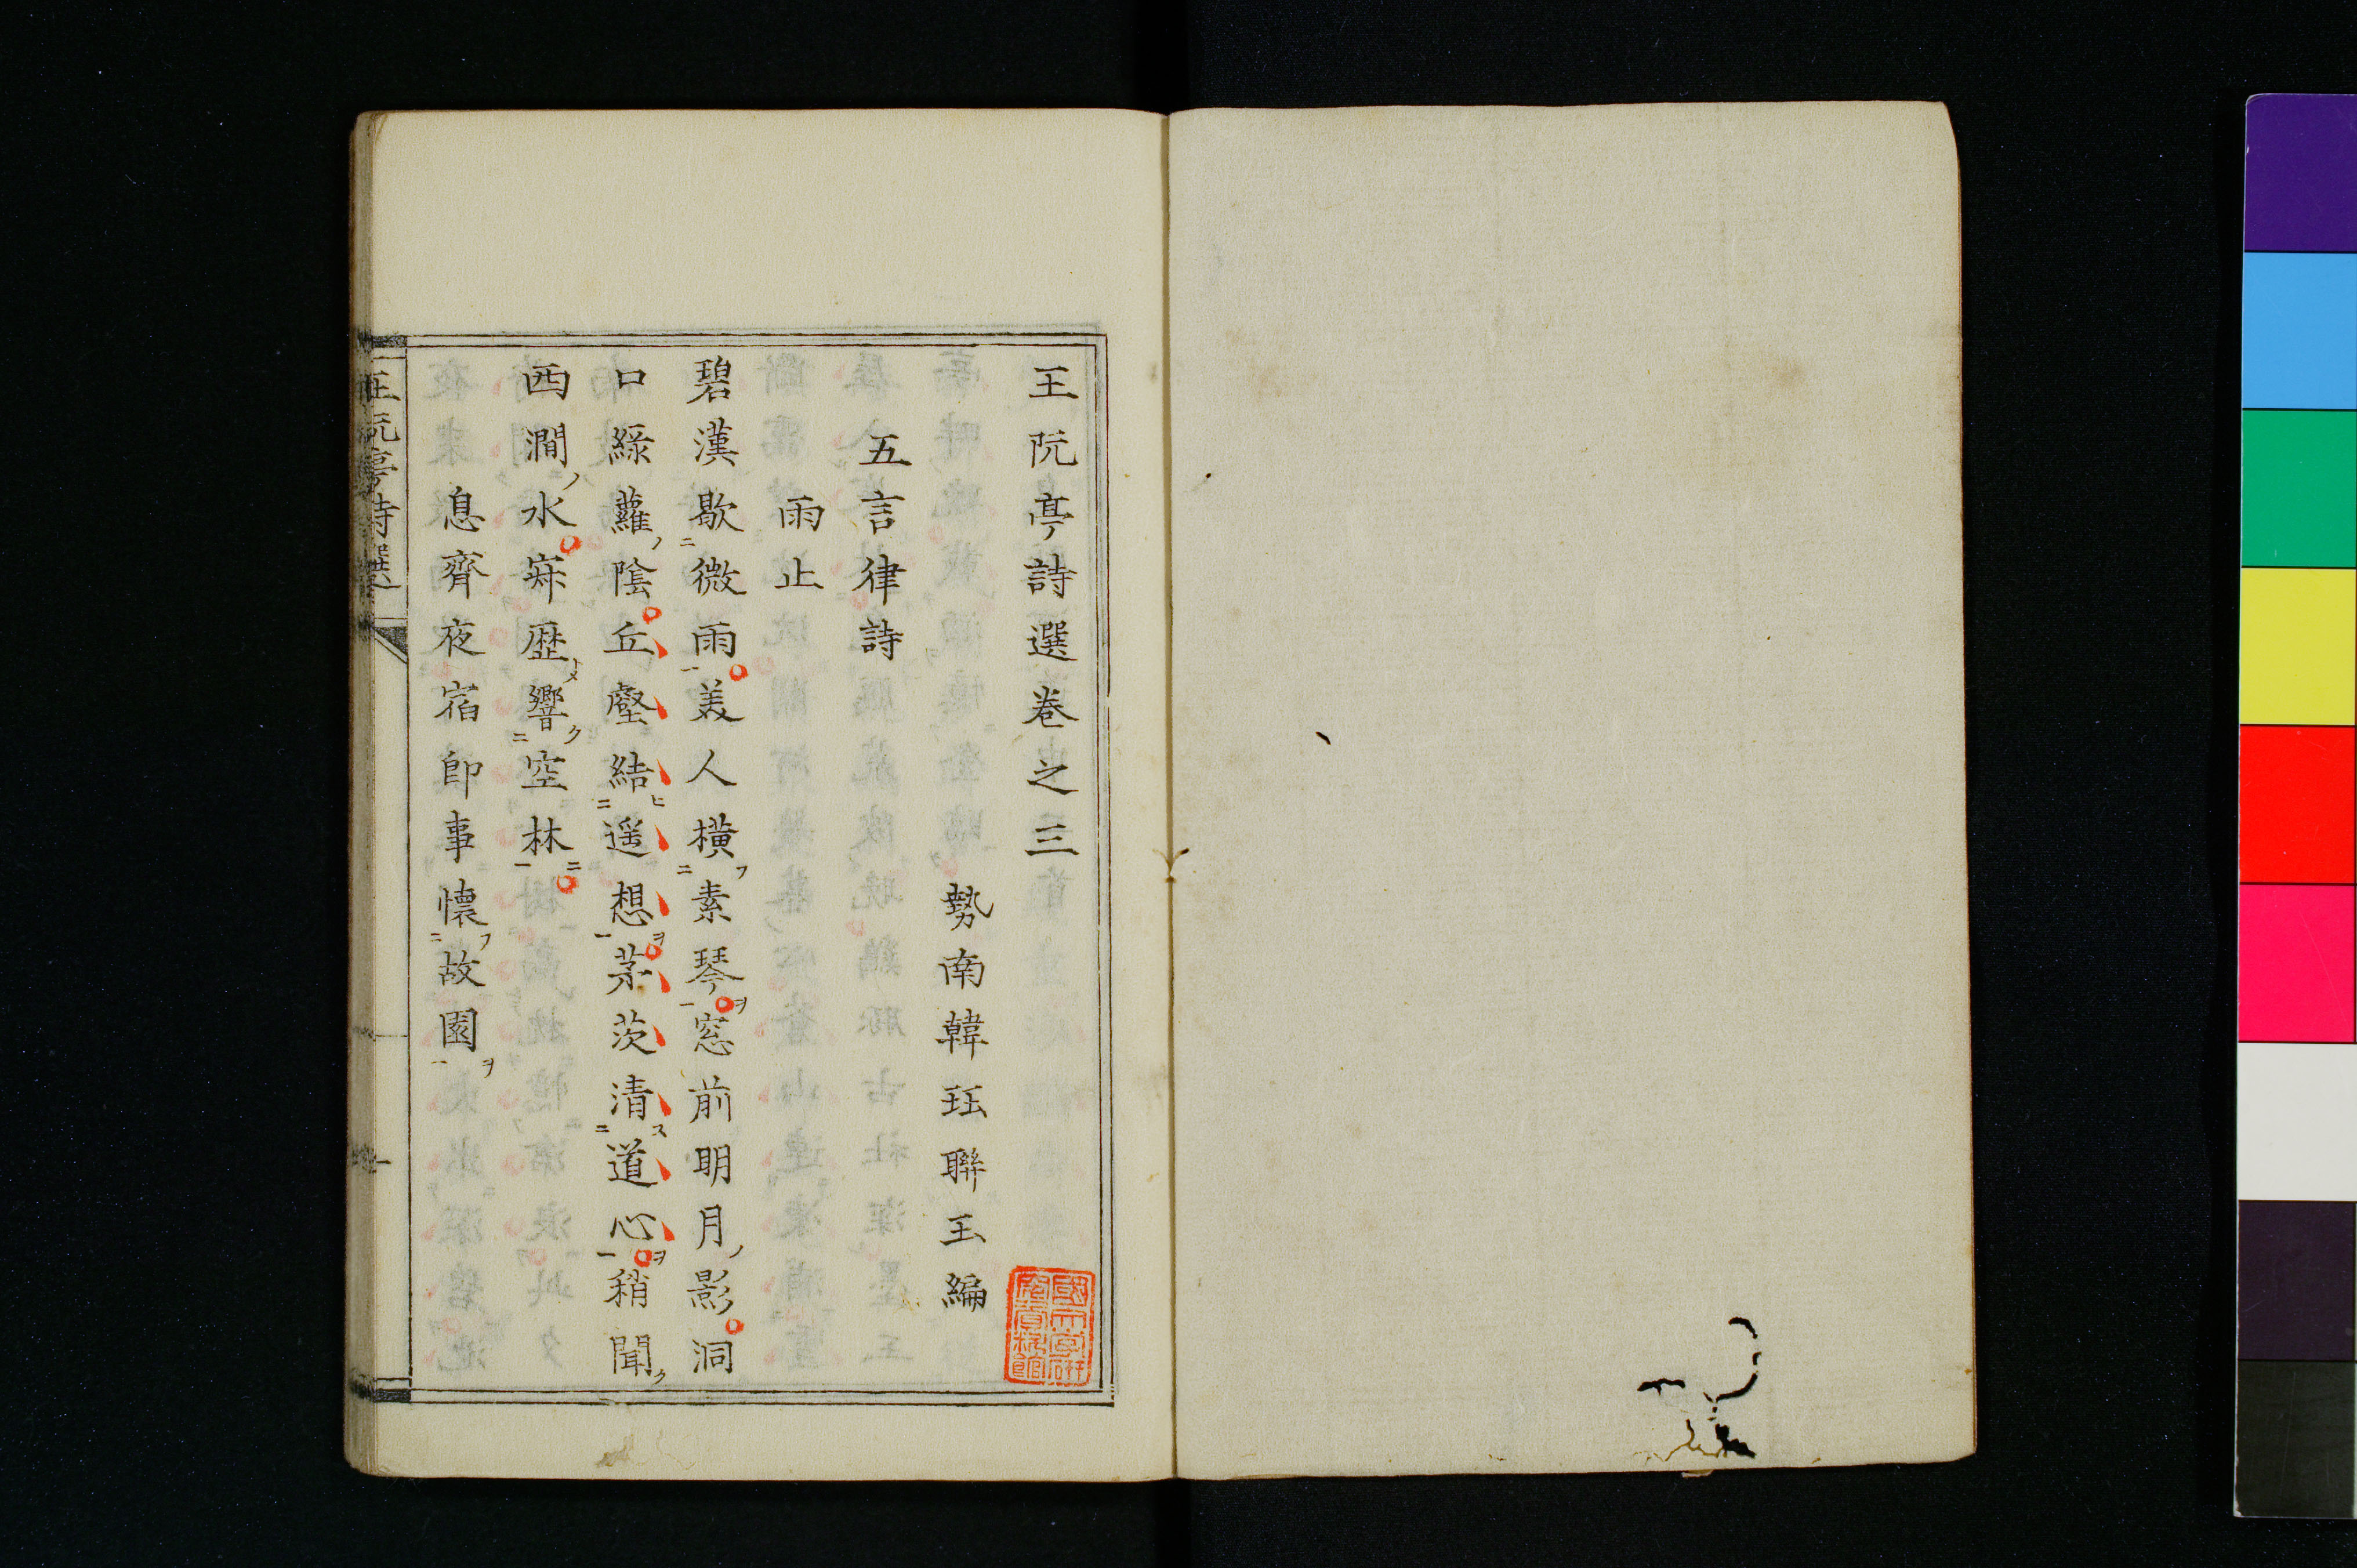 王阮亭詩選卷之三
勢南韓珏聯玉編
五言律詩
雨止
碧漢歇微雨美人橫素琴窓前明月影洞
口綠蘿陰丘壑結遥想茅茨清道心稍聞
西澗水寂歷響空林
息齊夜宿即事懷故園
王阮亭詩選
卷一